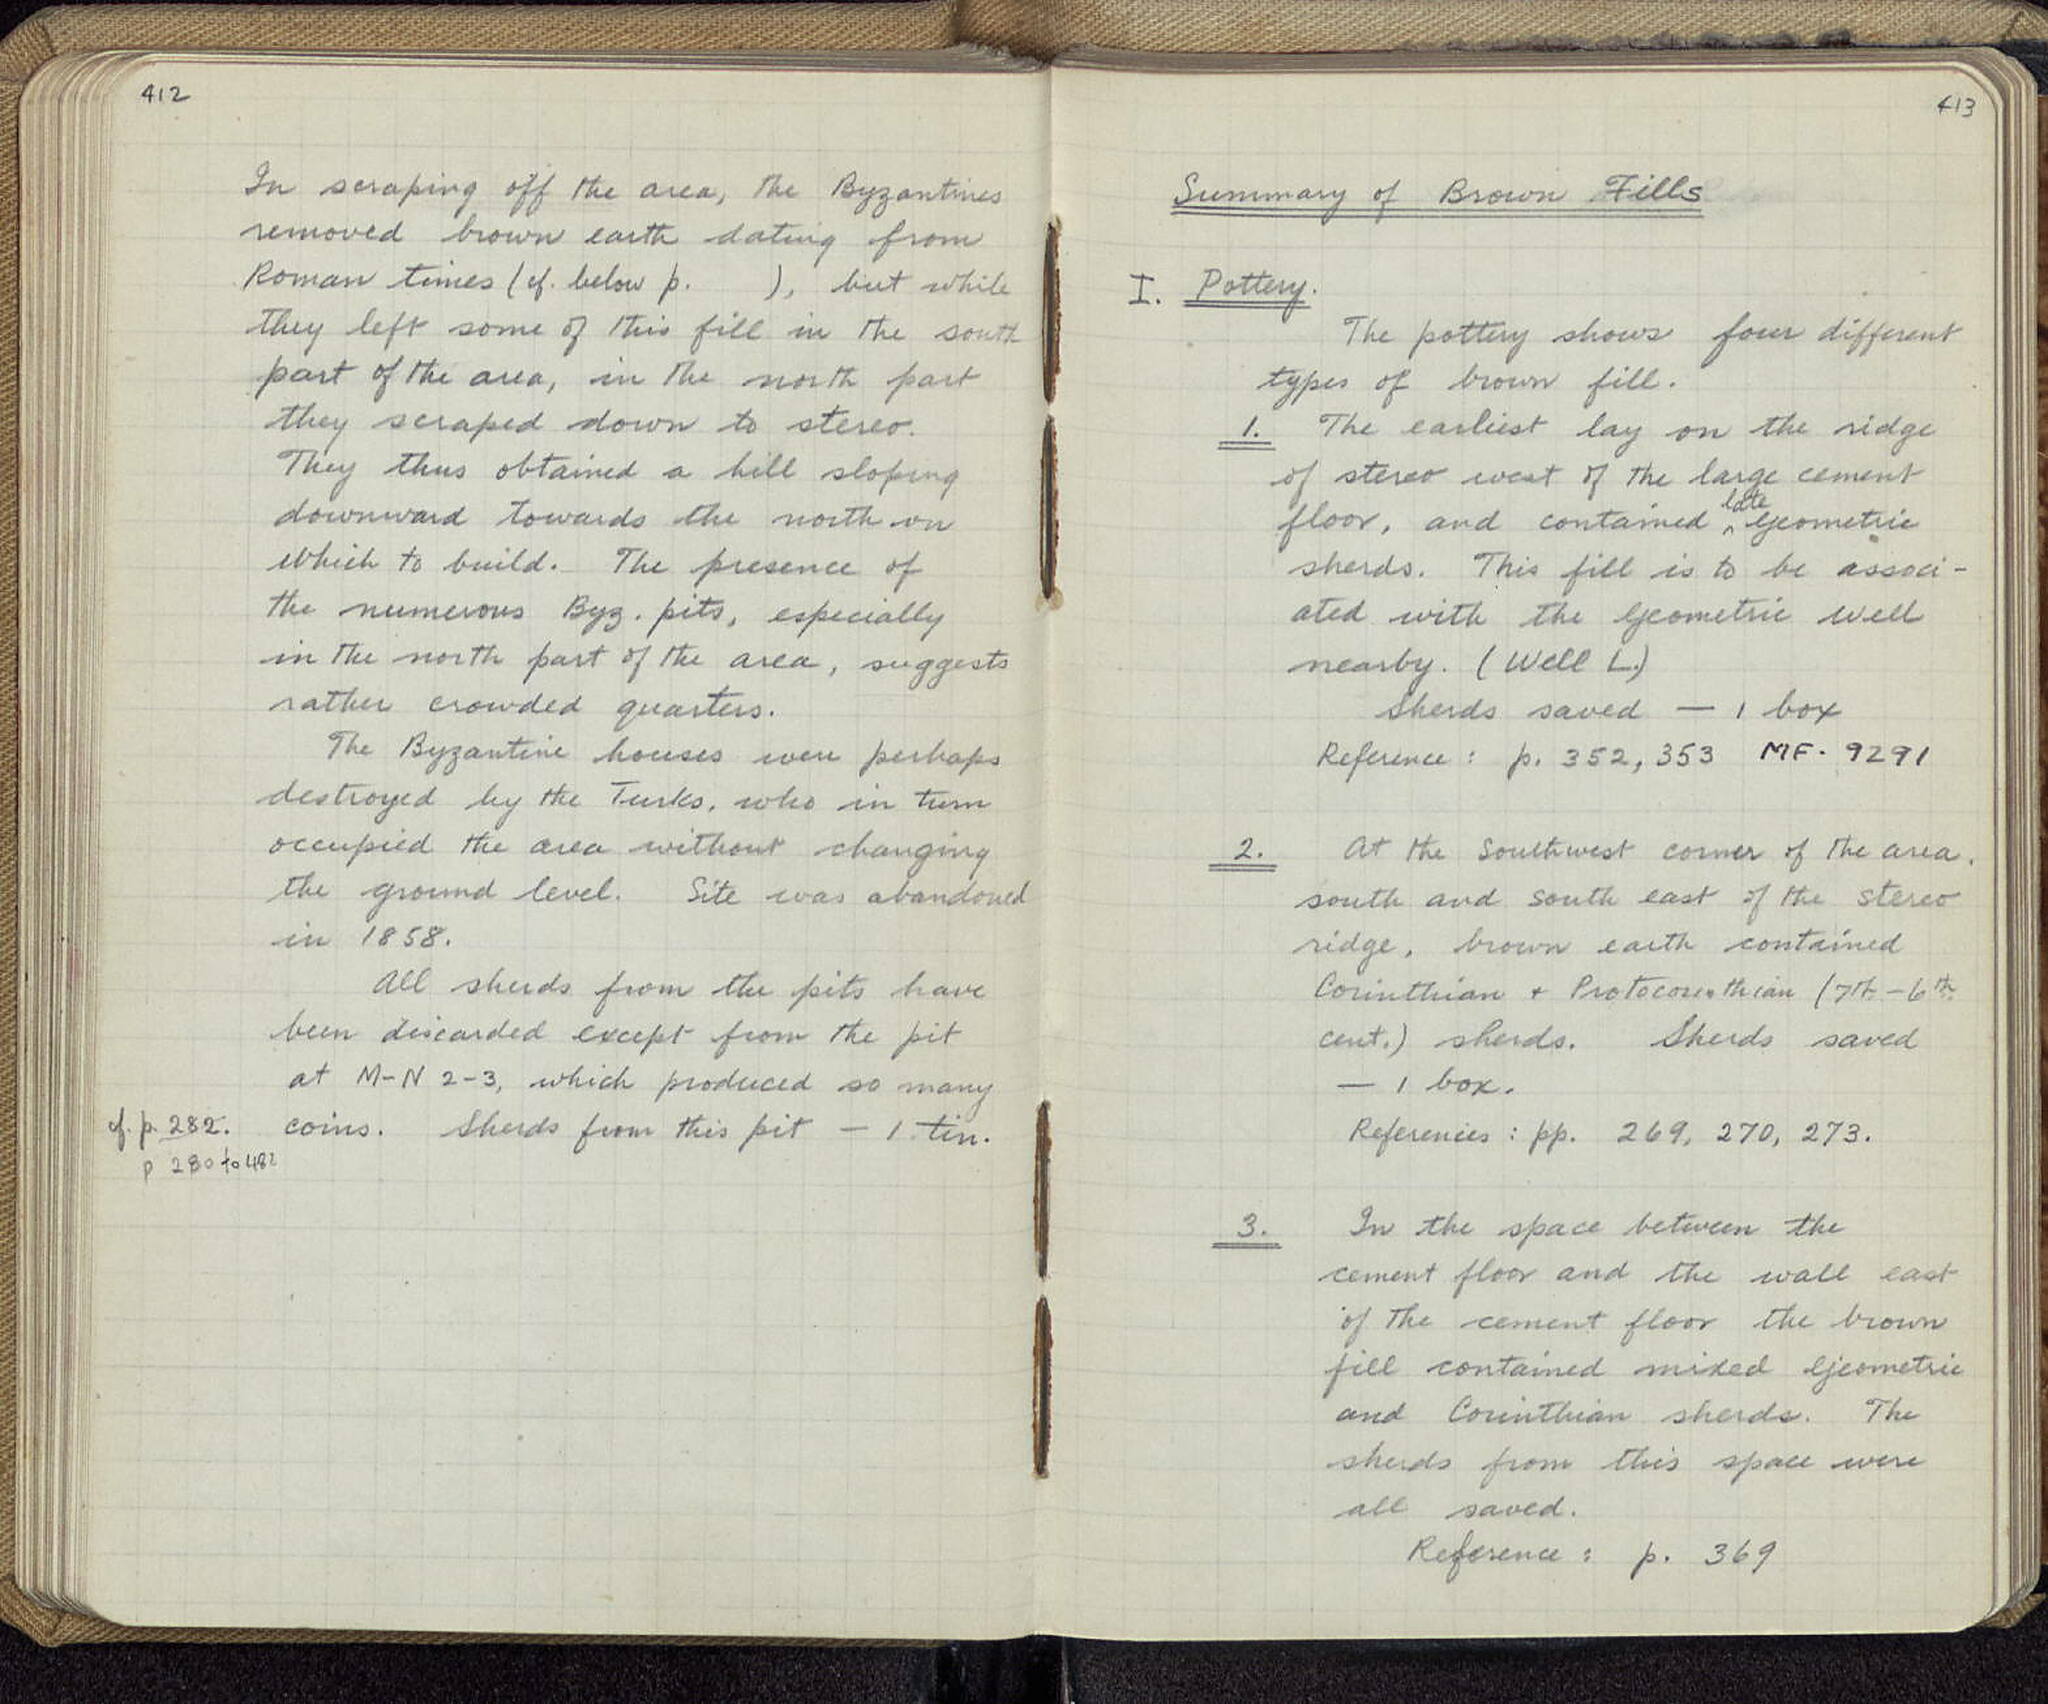 412
In scraping off the area, the Byzantines
removed brown earth dating from
Roman times (cf. below p.      ), but while
they left some of this fill in the south
part of the area, in the north part
they scraped down to stereo.
They thus obtained a hill sloping
downward towards the north on
which to build. The presence of
the numerous Byz. pits, especially
in the north part of the area, suggests
rather crowded quarters.
The Byzantine houses were perhaps
destroyed by the Turks, who in turn
occupied the area without changing
the ground level. Site was abandoned
in 1858.
All sherds from the pits have
been discarded except from the pit
at M-N 2-3, which produced so many
cf. p. 282. coins. Sherds from this pit — 1 tin.
p 280 to 482
413
Summary of Brown Fills
I. Pottery.
The pottery shows four different
types of brown fill.
1. The earliest lay on the ridge
of stereo west of the large cement
floor, and contained late Geometric
sherds. This fill is to be associ-
ated with the Geometric well
nearby. (Well L.)
Sherds saved — 1 box
Reference: p. 352, 353 MF. 9291
2. At the Southwest corner of the area,
south and south east of the stereo
ridge, brown earth contained
Corinthian + Protocorinthian (7th - 6th
cent.) sherds. Sherds saved
— 1 box.
References: pp. 269, 270, 273.
3. In the space between the
cement floor and the wall east
of the cement floor the brown
fill contained mixed Geometric
and Corinthian sherds. The
sherds from this space were
all saved.
Reference: p. 369